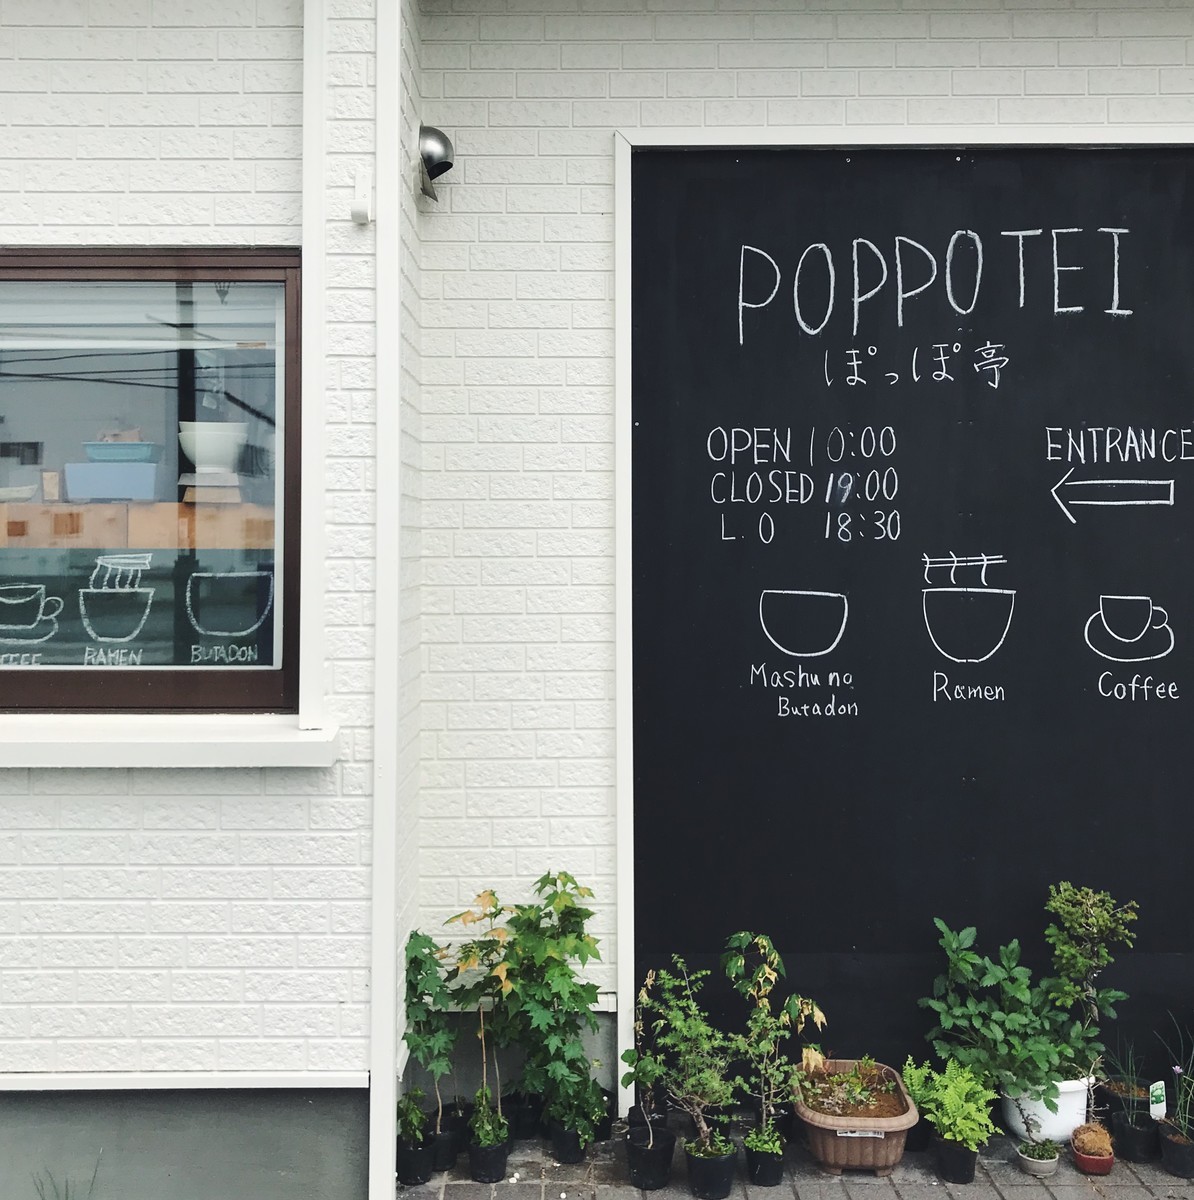 POPPOTEI
ぽっぽ亭
OPEN 10:00
CLOSED 19:00
L.O 18:30
ENTRANCE
Mashu no
Butadon
Ramen
Coffee
RAMEN
BUTADON